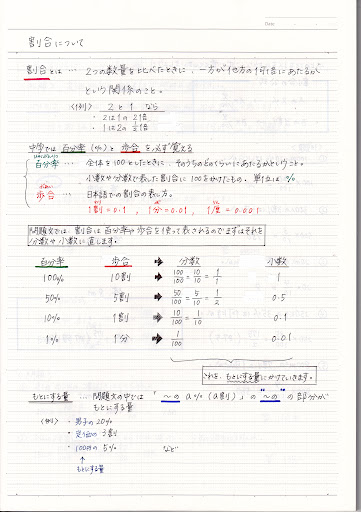 Date
割合について
割合とは … 2つの数量を比べたときに、一方が他方の何倍にあたるか
という関係のこと。
(例) 2と1なら
・2は1の2倍
・1は2の1/2倍
中学では百分率(%)と歩合を必ず覚える
百分率 … 全体を100としたときに、そのうちのどのくらいにあたるかということ。
小数や分数で表した割合に100をかけたもの。単位は%。
歩合 … 日本語での割合の表し方。
1割=0.1, 1分=0.01, 1厘=0.001
問題文では、割合は百分率や歩合を使って表されるのでまずはそれを
分数や小数に直します。
百分率 歩合 ➡ 分数 小数
100% 10割 ➡ 100/100=10/10=1/1 1
50% 5割 ➡ 50/100=5/10=1/2 0.5
10% 1割 ➡ 10/100=1/10 0.1
1% 1分 ➡ 1/100 0.01
これを、もとにする量にかけていきます。
もとにする量 … 問題文の中では「〜のa%(a割)」の"〜の"の部分が
もとにする量
(例) ・男子の20%
・定価の3割
・100円の5% など
↑
もとにする量